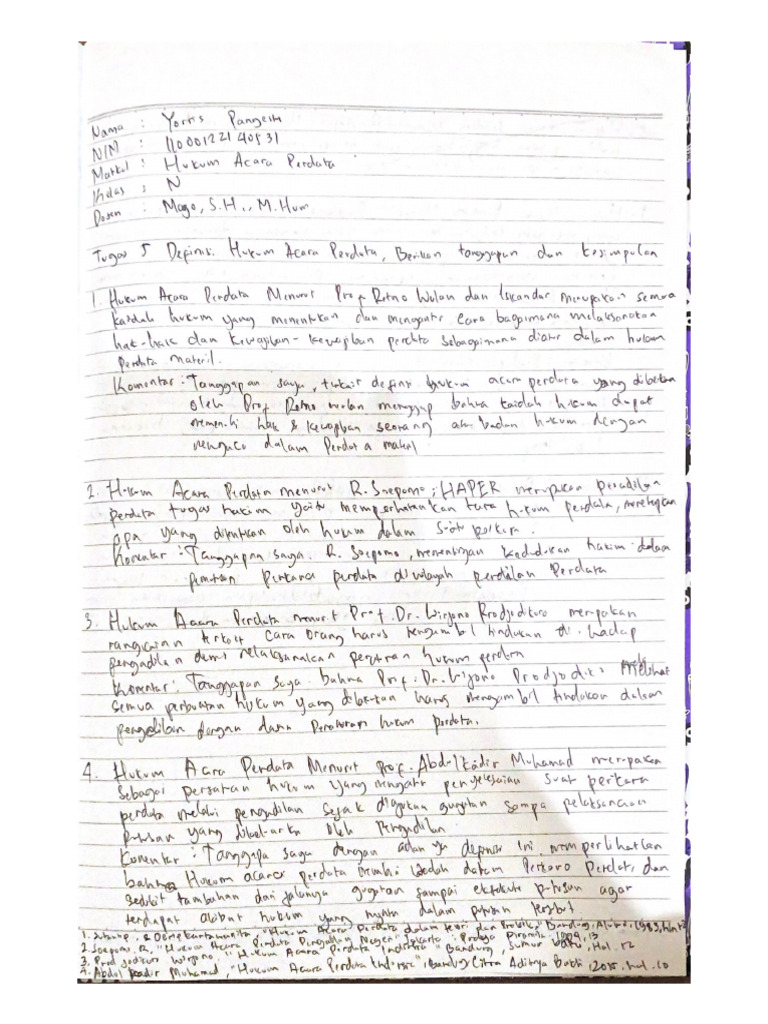 Nama : Yorris Pangestu
NIM : 11000122140531
Matkul : Hukum Acara Perdata
Kelas : N
Dosen : Mago, S.H., M.Hum
Tugas 5 Definisi Hukum Acara Perdata, Berikan tanggapan dan kesimpulan
1. Hukum Acara Perdata Menurut Prof Retno Wulan dan Iskandar merupakan semua
kaidah hukum yang menentukan dan mengatur cara bagaimana melaksanakan
hak-hak dan kewajiban-kewajiban perdata sebagaimana diatur dalam hukum
Perdata materil.
Komentar : Tanggapan saya, terkait definisi hukum acara perdata yang diberikan
oleh Prof Retno wulan menggap bahwa kaidah hukum dapat
memenuhi hak & kewajiban seorang badan hukum dengan
mengacu dalam Perdata materil
2. Hukum Acara Perdata menurut R. Soepomo, HAPER merupakan peradilan
perdata tugas hakim yaitu mempertahankan tata hukum perdata, menetapkan
apa yang ditentukan oleh hukum dalam suatu perkara.
Komentar : Tanggapan saya R. Soepomo, mementingan kedudukan hakim dalam
Perkara perdata di wilayah peradilan Perdata
3. Hukum Acara Perdata menurut Prof. Dr. Wirjono Prodjodikoro merupakan
rangkaian terkait cara orang harus mengambil tindakan di hadap
pengadilan demi melaksanakan peraturan hukum perdata
Komentar : Tanggapan saya bahwa Prof. Dr. Wirjono Prodjodik melihat
semua perbuatan hukum yang diberikan harus mengambil tindakan dalam
pengadilan dengan dasar hukum perdata.
4. Hukum Acara Perdata Menurut Prof. Abdulkadir Muhamad merupakan
sebagai peraturan hukum yang mengatur penyelesaian suat perkara
perdata melalui pengadilan sejak diajukan gugatan sampai pelaksanaan
Putusan yang dikeluarka oleh Pengadilan.
Komentar : Tanggapa saya dengan adanya definisi ini memperlihatkan
bahwa Hukum acara perdata dalam Perkara Perdata, dan
sedikit tambahan dari jalanya gugatan sampai eksekusi putusan agar
terdapat akibat hukum yang nyata dalam putusan tersebut
1. "Hukum Acara Perdata dalam teori dan Praktik", Bandung, Alumni, 1983,
2. Soepomo, R. "Hukum Acara Perdata Pengadilan Negeri" Jakarta : Pradnya Paramita, 13
3. Prodjodikoro Wirjono, "Hukum Acara Perdata Indonesia" Bandung, Sumur Baru, Hal. 12
4. Abdul Kadir Muhamad, "Hukum Acara Perdata Indonesia", Bandung Citra Aditya Bakti, 2015, hal. 10